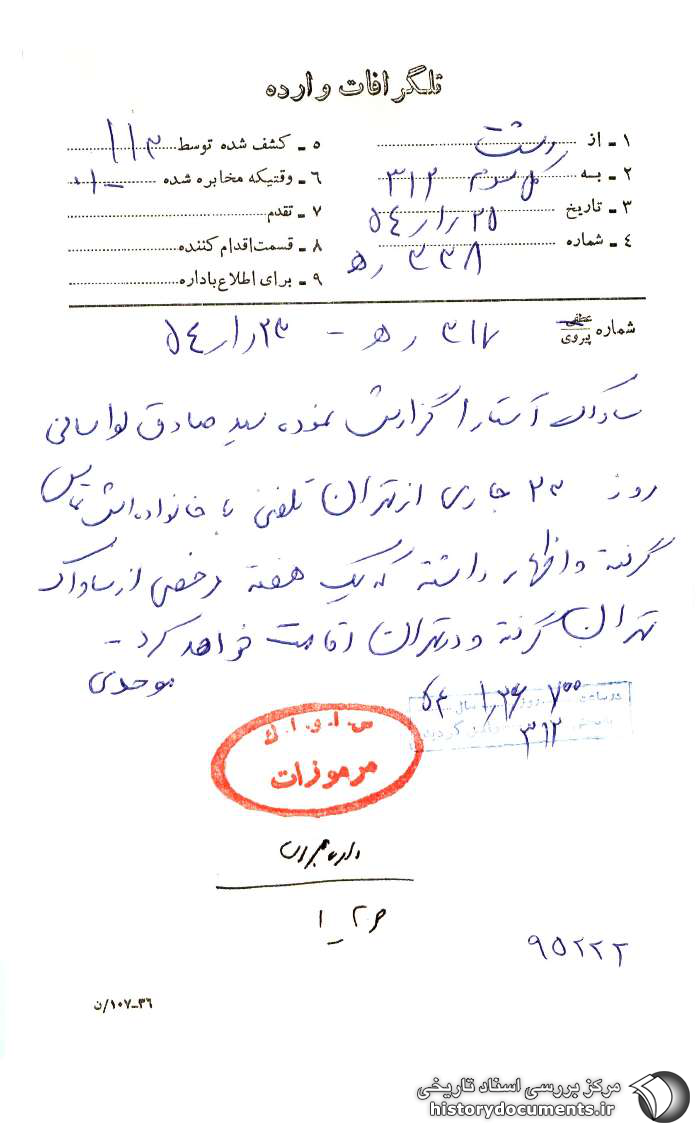 تلگرافات وارده
۱ - از رشت
۲ - به کل سوم ۳۱۲
۳ - تاریخ ۲۵ ر ۱ر ۵۴
۴ - شماره ۳۳۸ ر ه
۵ - کشف شده توسط
۶ - وقتیکه مخابره شده
۷ - تقدم
۸ - قسمت اقدام کننده
۹ - برای اطلاع باداره
شماره عطفی پیروی ۳۱۷ ر ه - ۲۳ ر ۱ر ۵۴
ساواک آستارا گزارش نموده سید صادق لواسانی
روز ۲۳ جاری از تهران تلفنی با خانواده اش تماس
گرفته و اظهار داشته که یک هفته مرخصی از ساواک
تهران گرفته و در تهران اقامت خواهد کرد -
موحدی
در ساعت ۷۰۰ روز ۱٫۲۶ سال ۵۴
۳۱۲
س . ا . و . ا . ک
مرموزات
۹۵۲۲۲
۳۶-۱۰۷/ن
مرکز بررسی اسناد تاریخی
historydocuments.ir